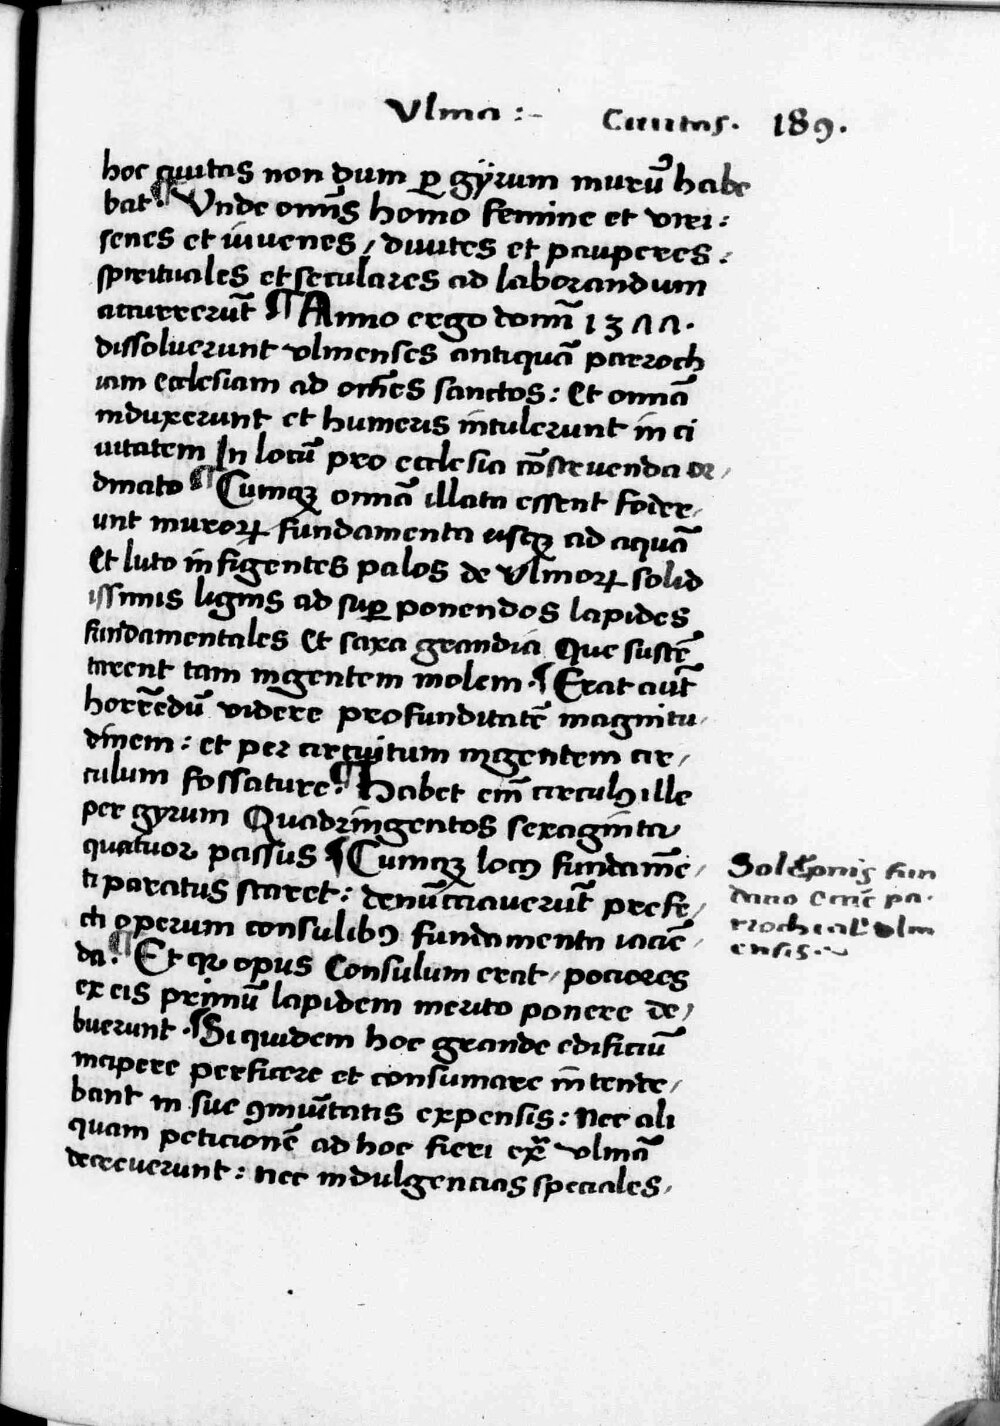 Vlma :- Ciuitas. 189.
hoc ciuitas non dum ꝑ gÿrum murū habe
bat. ¶ Vnde omīs homo femine et viri:
senes et iuuenes, diuites et pauperes:
spirituales et seculares ad laborandum
accurrerūt ¶ Anno ergo domī 1377.
dissoluerunt vlmenses antiquā parroch
iam ecclesiam ad omēs sanctos: Et omnā
induxerunt et humeris intulerunt in ci
uitatem In locū pro ecclesia cōstruenda or,
dinato ¶ Cumqꝫ omnā illata essent foder,
unt muroꝝ fundamenta usqꝫ ad aquā
Et luto infigentes palos de Vlmoꝝ solid
issimis lignis ad suꝑ ponendos lapides
fundamentales Et saxa grandia Que sustē
tarent tam ingentem molem. ¶ Erat aūt
horrēdū videre profunditatē magnitu,
dinem: et per circuitum ingentem cir,
culum fossature. ¶ Habet em̄ circulꝰ ille
per gyrum Quadringentos sexaginta
quatuor passus ¶ Cumqꝫ locꝰ fundamē,
ti paratus staret: denūcciauerūt prefe,
cti operum consulibꝰ fundamenta iaciē,
da. ¶ Et qꝛ opus Consulum erat, pociores
ex eis primū lapidem merito ponere de,
buerunt. ¶ Siquidem hoc grande edificiū
incipere perficere et consumare intende,
bant in sue ꝯmūitatis expensis: Nec ali
quam peticionē ad hoc fieri ex̄ vlmā
decreuerunt: nec indulgencias speciales,
Solēpnis fun
dacio eccīe pa.
rrochialꝭ vlm
ensis.